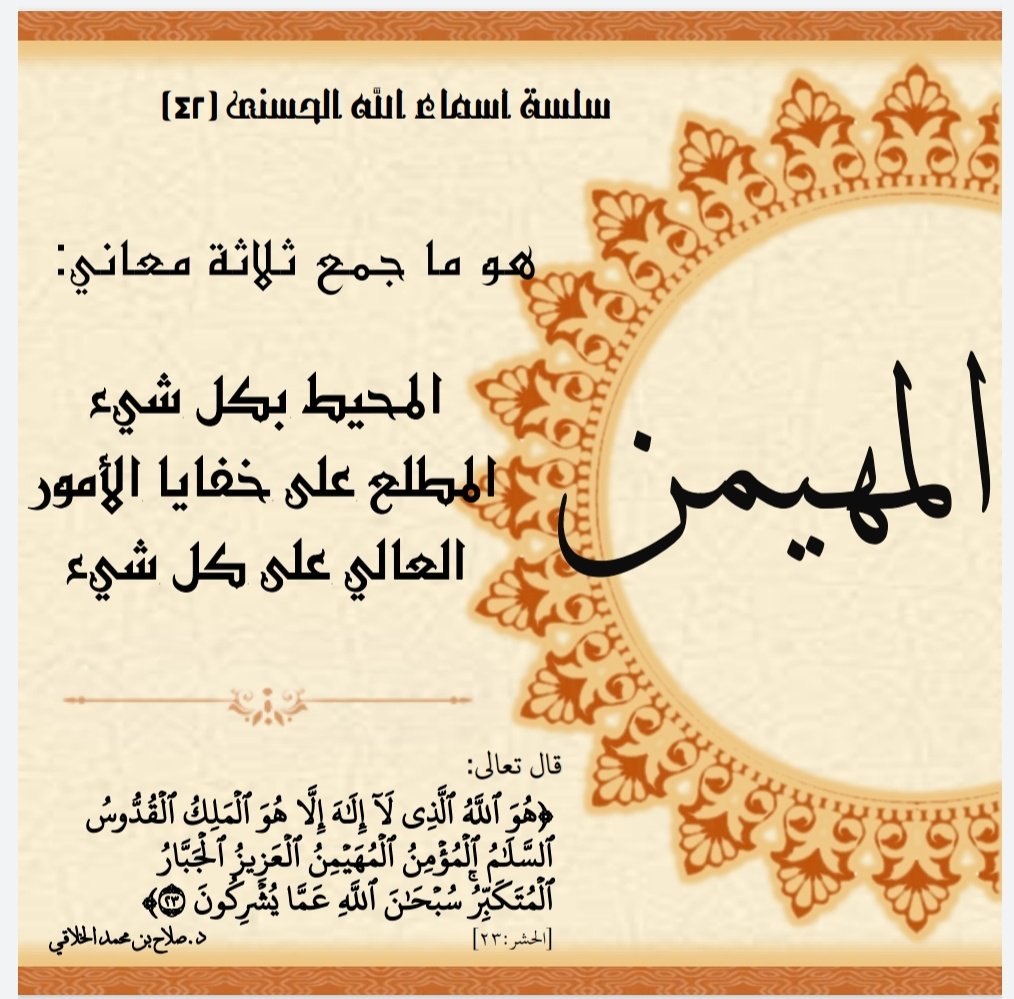 سلسة اسماء الله الحسنى (٤٢)
هو ما جمع ثلاثة معاني:
المحيط بكل شيء
المطلع على خفايا الأمور
العالي على كل شيء
المهيمن
قال تعالى:
﴿هُوَ ٱللَّهُ ٱلَّذِى لَآ إِلَٰهَ إِلَّا هُوَ ٱلْمَلِكُ ٱلْقُدُّوسُ
ٱلسَّلَٰمُ ٱلْمُؤْمِنُ ٱلْمُهَيْمِنُ ٱلْعَزِيزُ ٱلْجَبَّارُ
ٱلْمُتَكَبِّرُ ۚ سُبْحَٰنَ ٱللَّهِ عَمَّا يُشْرِكُونَ ٢٣﴾
[الحشر:٢٣]
د. صلاح بن محمد الخلاقي